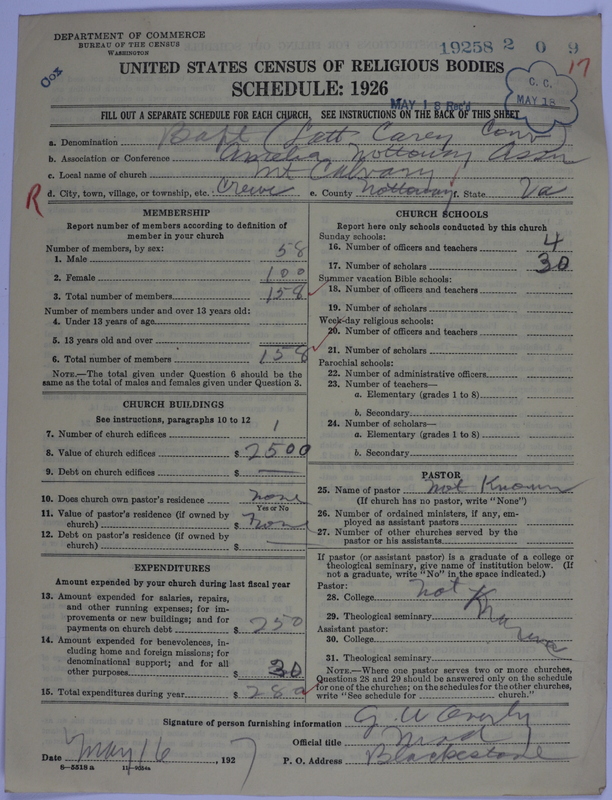 DEPARTMENT OF COMMERCE
BUREAU OF THE CENSUS
WASHINGTON
19258 2 0 9
17
UNITED STATES CENSUS OF RELIGIOUS BODIES
SCHEDULE: 1926
C. C.
MAY 18
MAY 18 Rec'd
FILL OUT A SEPARATE SCHEDULE FOR EACH CHURCH, SEE INSTRUCTIONS ON THE BACK OF THIS SHEET
a. Denomination Bapt (Lott Carey Conv)
b. Association or Conference Amelia Nottoway Assn
c. Local name of church Mt Calvary
R
d. City, town, village, or township, etc. Crewe e. County Nottoway f. State Va
MEMBERSHIP
Report number of members according to definition of
member in your church
Number of members, by sex:
1. Male 58
2. Female 100
3. Total number of members 158
Number of members under and over 13 years old:
4. Under 13 years of age
5. 13 years old and over
6. Total number of members 158
NOTE.—The total given under Question 6 should be
same as the total of males and females given under Question 3.
CHURCH BUILDINGS
See instructions, paragraphs 10 to 12
7. Number of church edifices 1
8. Value of church edifices $ 2500
9. Debt on church edifices $ —
10. Does church own pastor's residence none
Yes or No
11. Value of pastor's residence (if owned by
church) $ none
12. Debt on pastor's residence (if owned by
church) $ —
EXPENDITURES
Amount expended by your church during last fiscal year
13. Amount expended for salaries, repairs,
and other running expenses; for im-
provements or new buildings; and for
payments on church debt $ 250
14. Amount expended for benevolences, in-
cluding home and foreign missions; for
denominational support; and for all
other purposes $ 30
15. Total expenditures during year $ 280
CHURCH SCHOOLS
Report here only schools conducted by this church
Sunday schools:
16. Number of officers and teachers 4
17. Number of scholars 30
Summer vacation Bible schools:
18. Number of officers and teachers
19. Number of scholars
Week-day religious schools:
20. Number of officers and teachers
21. Number of scholars
Parochial schools:
22. Number of administrative officers
23. Number of teachers—
a. Elementary (grades 1 to 8)
b. Secondary
24. Number of scholars—
a. Elementary (grades 1 to 8)
b. Secondary
PASTOR
25. Name of pastor not Known
(If church has no pastor, write "None")
26. Number of ordained ministers, if any, em-
ployed as assistant pastors
27. Number of other churches served by the
pastor or his assistants
If pastor (or assistant pastor) is a graduate of a college or
theological seminary, give name of institution below. (If
not a graduate, write "No" in the space indicated.)
Pastor:
28. College not
29. Theological seminary Known
Assistant pastor:
30. College
31. Theological seminary
NOTE.—Where one pastor serves two or more churches,
Questions 28 and 29 should be answered only on the schedule
for one of the churches; on the schedules for the other churches,
write "See schedule for church."
Signature of person furnishing information G. W Overby
Official title Mod
Date May 16, 1927 P. O. Address Blackstone
8—5518 a